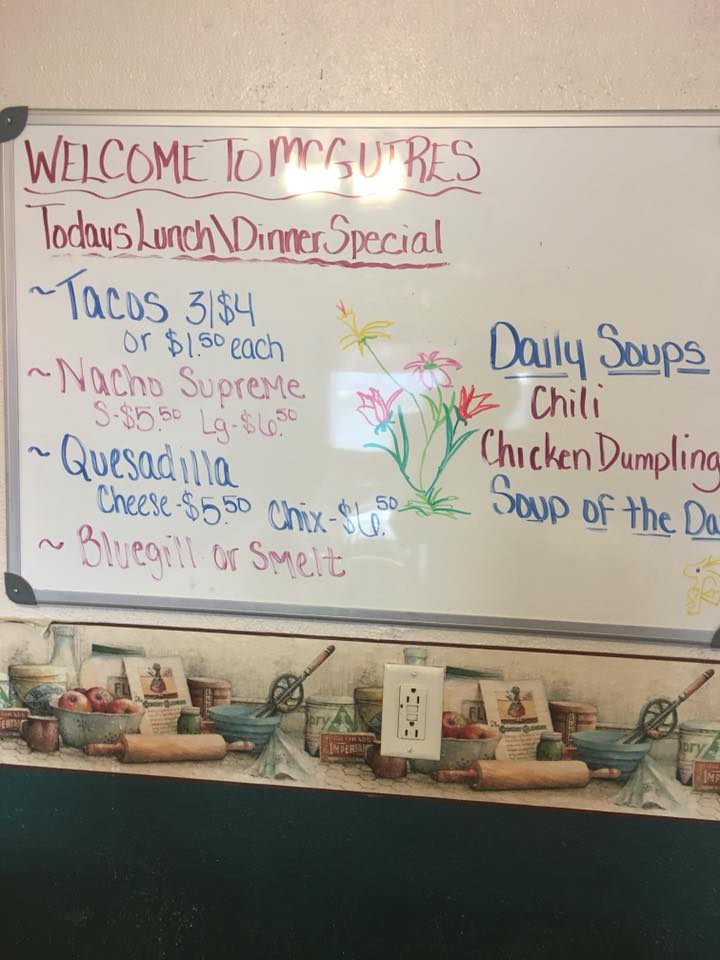 WELCOME TO MCGUIRES
Todays Lunch\Dinner Special
~Tacos 3/$4
or $1.50 each
~Nacho Supreme
S-$5.50 Lg-$6.50
~Quesadilla
Cheese-$5.50 Chix-$6.50
~Bluegill or Smelt
Daily Soups
Chili
Chicken Dumpling
Soup of the Da
IMPERIAL